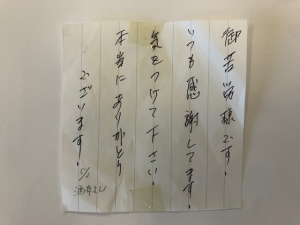 御苦労様です!
いつも感謝してます!
気をつけて下さい!
本当にありがとう
ございます!
5/2